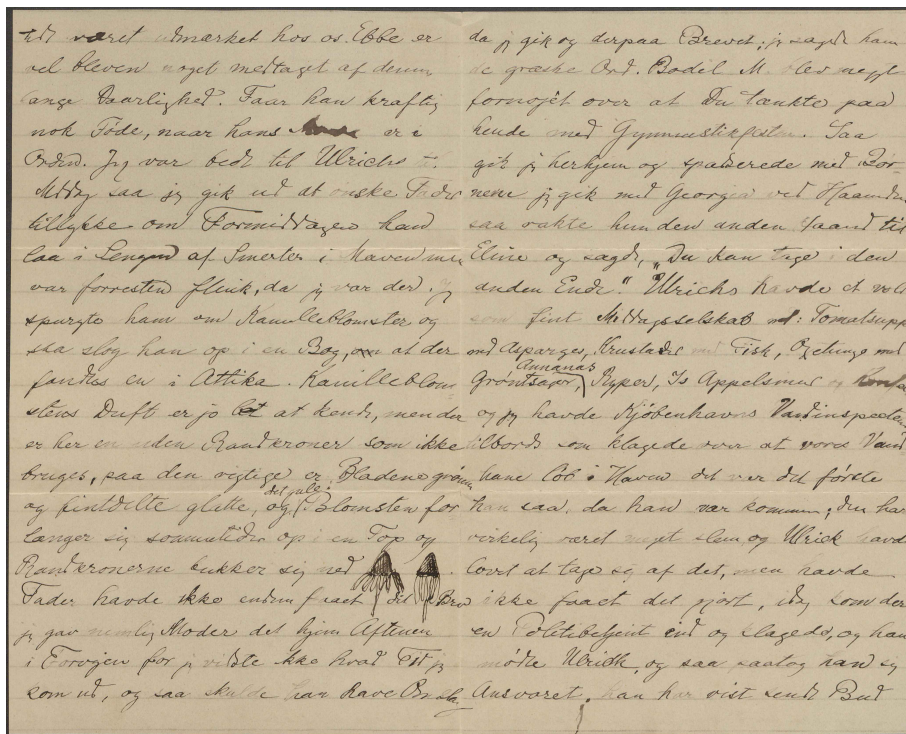 tids været udmærket hos os. Ebbe er
vel bleven noget medtaget af denne
lange Daarlighed. Faar han kraftig
nok Føde, naar hans er i
Orden. Jeg var bedt til Ulrichs til
Middag saa jeg gik ud at ønske Fader
tillykke om Formiddagen han
laa i Sengen af Smerter i Maven men
var forresten flink, da jeg var der. Jeg
spurgte ham om Kamilleblomster og
saa slog han op i en Bog, at der
fandtes en i Attika. Kamilleblom
stens Duft er jo let at kende, men der
er her en uden Randkroner som ikke
bruges, saa den rigtige er Bladene grønne
og fintdelte glatte, og det gule i Blomsten for
længer sig sommetider op i en Top og
Randkronerne bukker sig ned
Fader havde ikke endnu faaet dit Brev
jeg gav nemlig Moder det hjem Aftenen
i Forvejen for jeg vidste ikke hvad Tid jeg
kom ud, og saa skulde han have
da jeg gik og derpaa Brevet; jeg sagde ham
de græske Ord. Bodil M. blev meget
fornøjet over at Du tænkte paa
hende med Gymnastikfesten. Saa
gik jeg herhjem og spadserede med Bør-
nene jeg gik med Georgia ved Haanden
saa rakte hun den anden Haand til
Eline og sagde, "Du kan tage i den
anden Ende." Ulrichs havde et vold
som fint Middagsselskab med: Tomatsuppe
med Asparges, Krustader med Fisk, Oxetunge med
Grøntsager, Annanas Ryper, Is Appelsiner og
og jeg havde Kjøbenhavns Vandinspecteur
tilbords som klagede over at vores Vand
hane løb i Haven det var det første
han saa, da han var kommen; den har
virkelig været meget slem og Ulrich havde
lovet at tage sig af det, men havde
ikke faaet det gjort, idag kom der
en Politibetjent ind og klagede, og han
mødte Ulrich, og saa paatog han sig
Ansvaret. han har vist sendt Bud